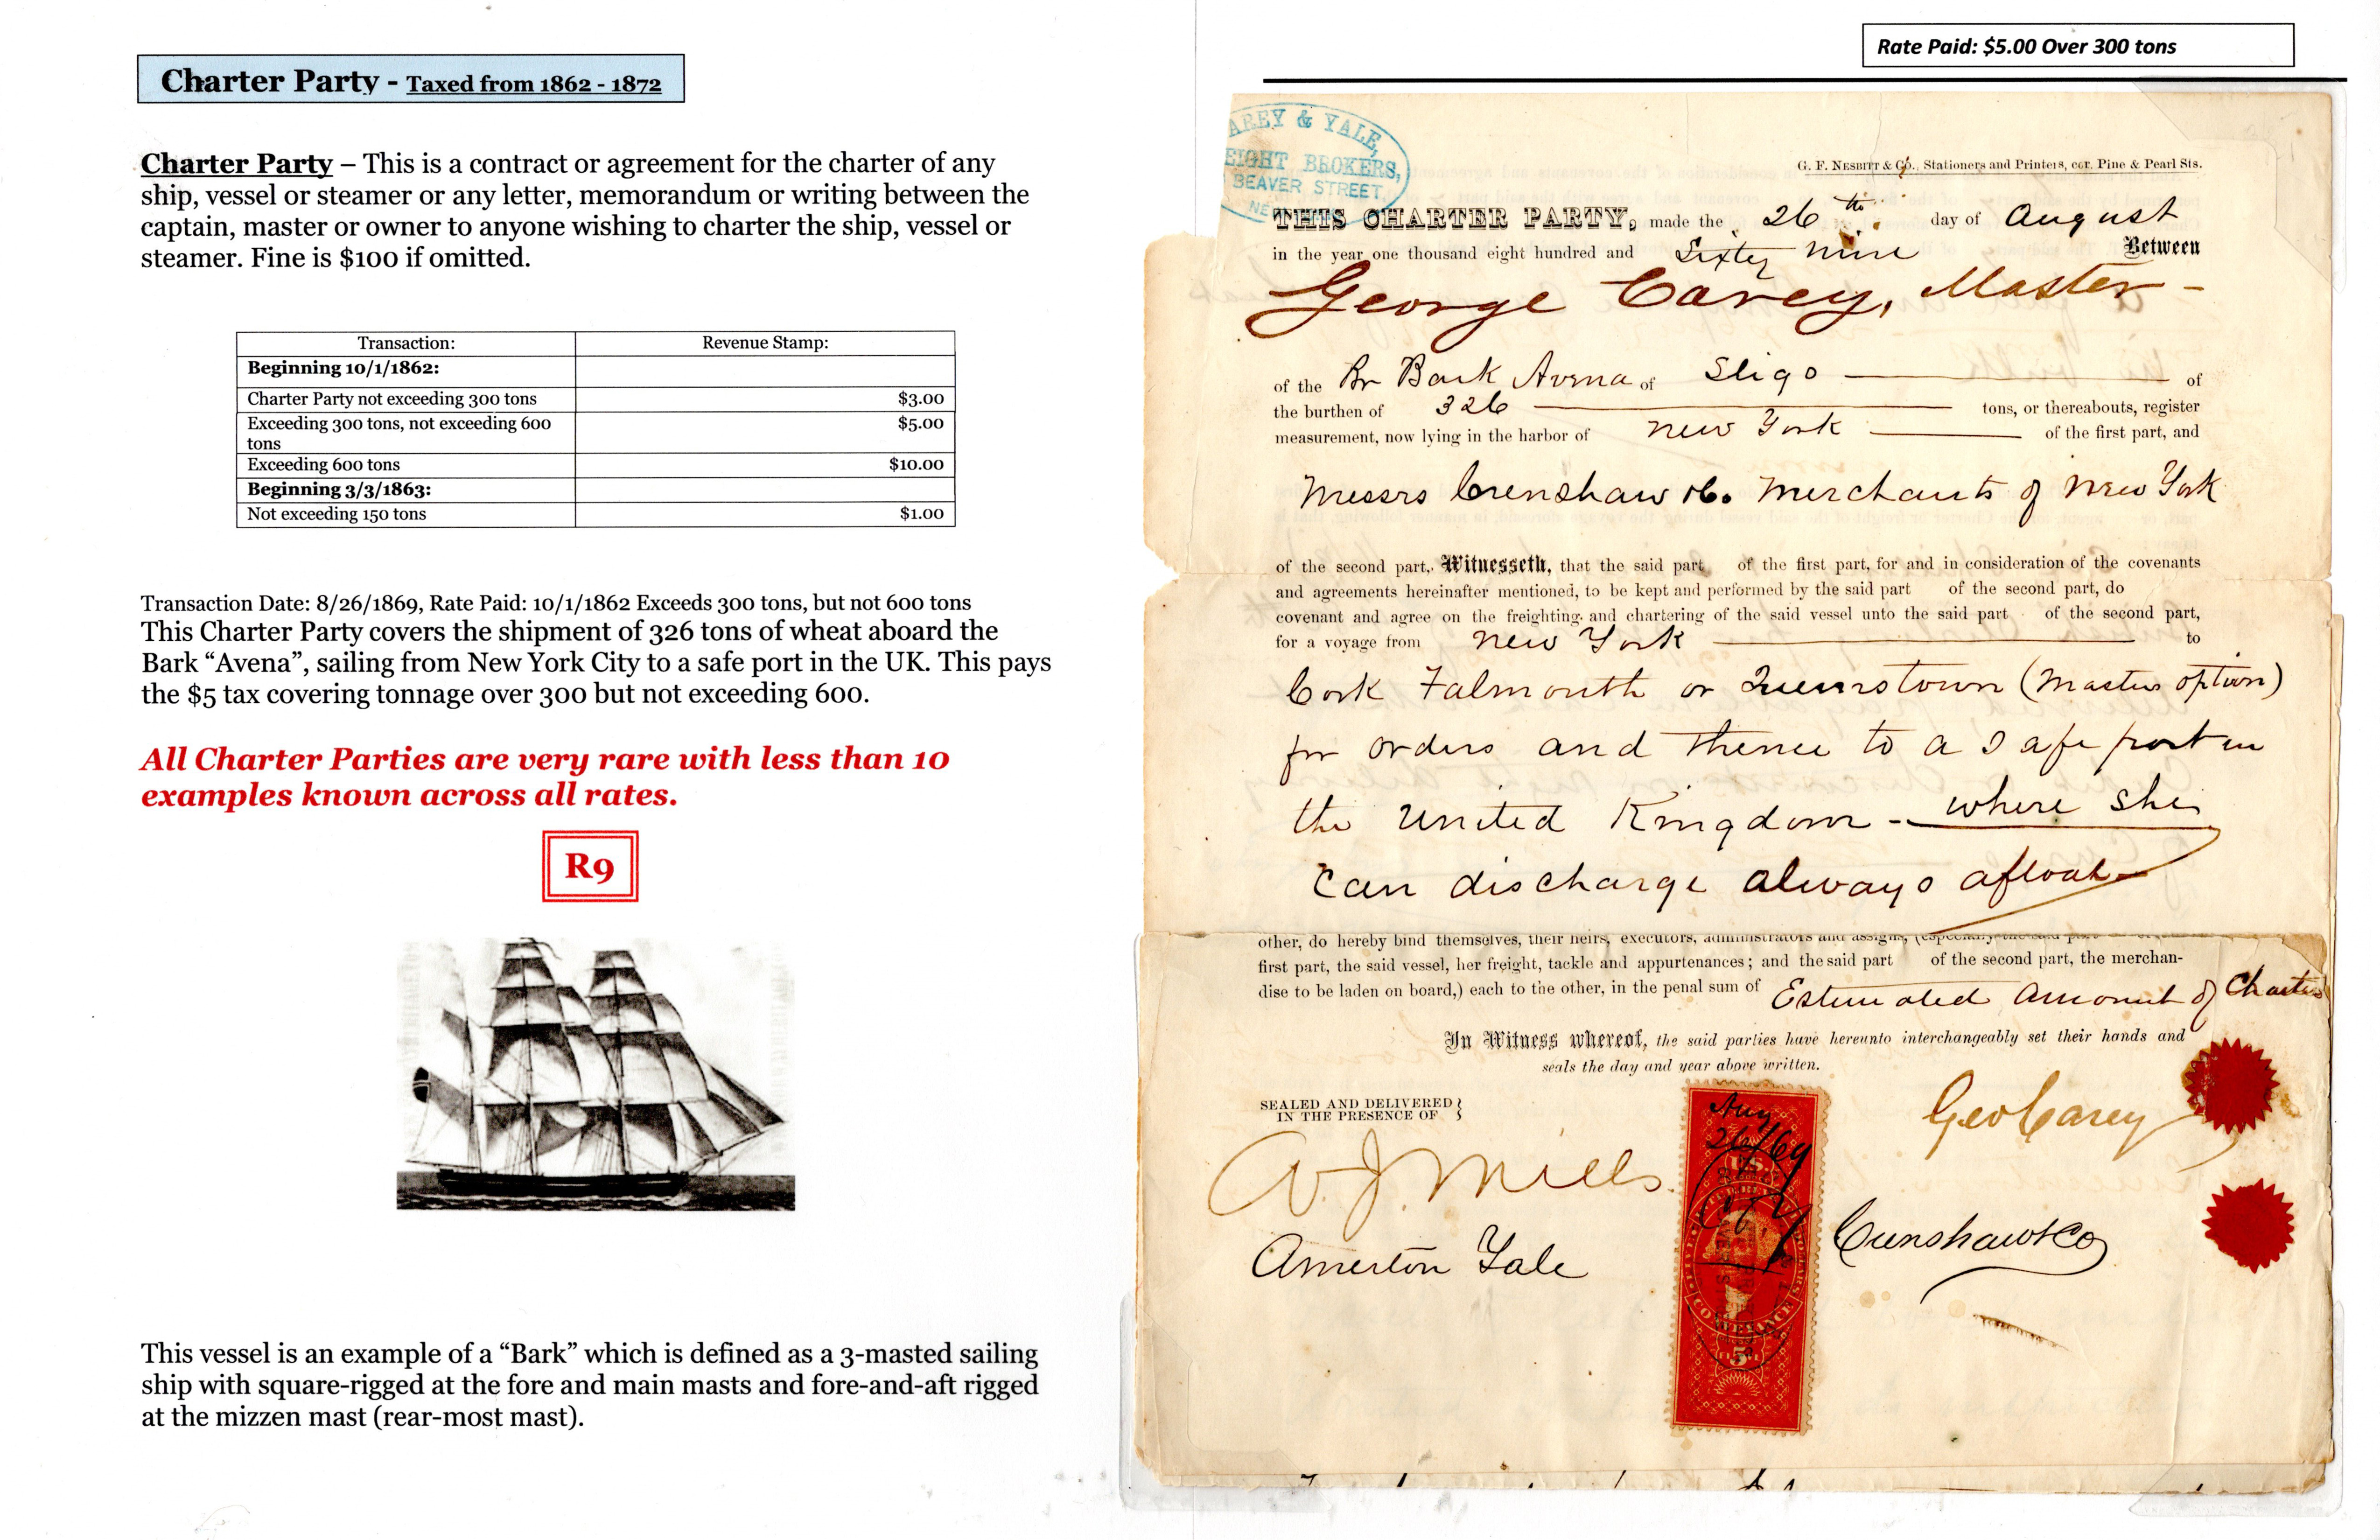 Charter Party - Taxed from 1862 - 1872
Charter Party – This is a contract or agreement for the charter of any
ship, vessel or steamer or any letter, memorandum or writing between the
captain, master or owner to anyone wishing to charter the ship, vessel or
steamer. Fine is $100 if omitted.
Transaction: Revenue Stamp:
Beginning 10/1/1862:
Charter Party not exceeding 300 tons $3.00
Exceeding 300 tons, not exceeding 600 $5.00
tons
Exceeding 600 tons $10.00
Beginning 3/3/1863:
Not exceeding 150 tons $1.00
Transaction Date: 8/26/1869, Rate Paid: 10/1/1862 Exceeds 300 tons, but not 600 tons
This Charter Party covers the shipment of 326 tons of wheat aboard the
Bark “Avena”, sailing from New York City to a safe port in the UK. This pays
the $5 tax covering tonnage over 300 but not exceeding 600.
All Charter Parties are very rare with less than 10
examples known across all rates.
R9
This vessel is an example of a “Bark” which is defined as a 3-masted sailing
ship with square-rigged at the fore and main masts and fore-and-aft rigged
at the mizzen mast (rear-most mast).
Rate Paid: $5.00 Over 300 tons
AREY & YALE,
EIGHT BROKERS,
BEAVER STREET,
NE
G. F. NESBITT & Co., Stationers and Printers, cor. Pine & Pearl Sts.
THIS CHARTER PARTY, made the 26th day of August
in the year one thousand eight hundred and Sixty nine Between
George Carey, Master -
of the Br Bark Avena of Sligo of
the burthen of 326 tons, or thereabouts, register
measurement, now lying in the harbor of New York of the first part, and
Messrs Crenshaw & Co. Merchants of New York
of the second part, Witnesseth, that the said part of the first part, for and in consideration of the covenants
and agreements hereinafter mentioned, to be kept and performed by the said part of the second part, do
covenant and agree on the freighting and chartering of the said vessel unto the said part of the second part,
for a voyage from New York to
Cork Falmouth or Queenstown (Masters option)
for orders and thence to a safe port in
the United Kingdom - where she
can discharge always afloat
other, do hereby bind themselves, their heirs, executors, administrators and assigns, (especially the said part of
first part, the said vessel, her freight, tackle and appurtenances; and the said part of the second part, the merchan-
dise to be laden on board,) each to the other, in the penal sum of Estimated Amount of Charter
In Witness whereof, the said parties have hereunto interchangeably set their hands and
seals the day and year above written.
SEALED AND DELIVERED
IN THE PRESENCE OF
Geo Carey
Mills
Yale
Crenshaw & Co
Aug
26/69
U.S.
CONVEYANCE
5